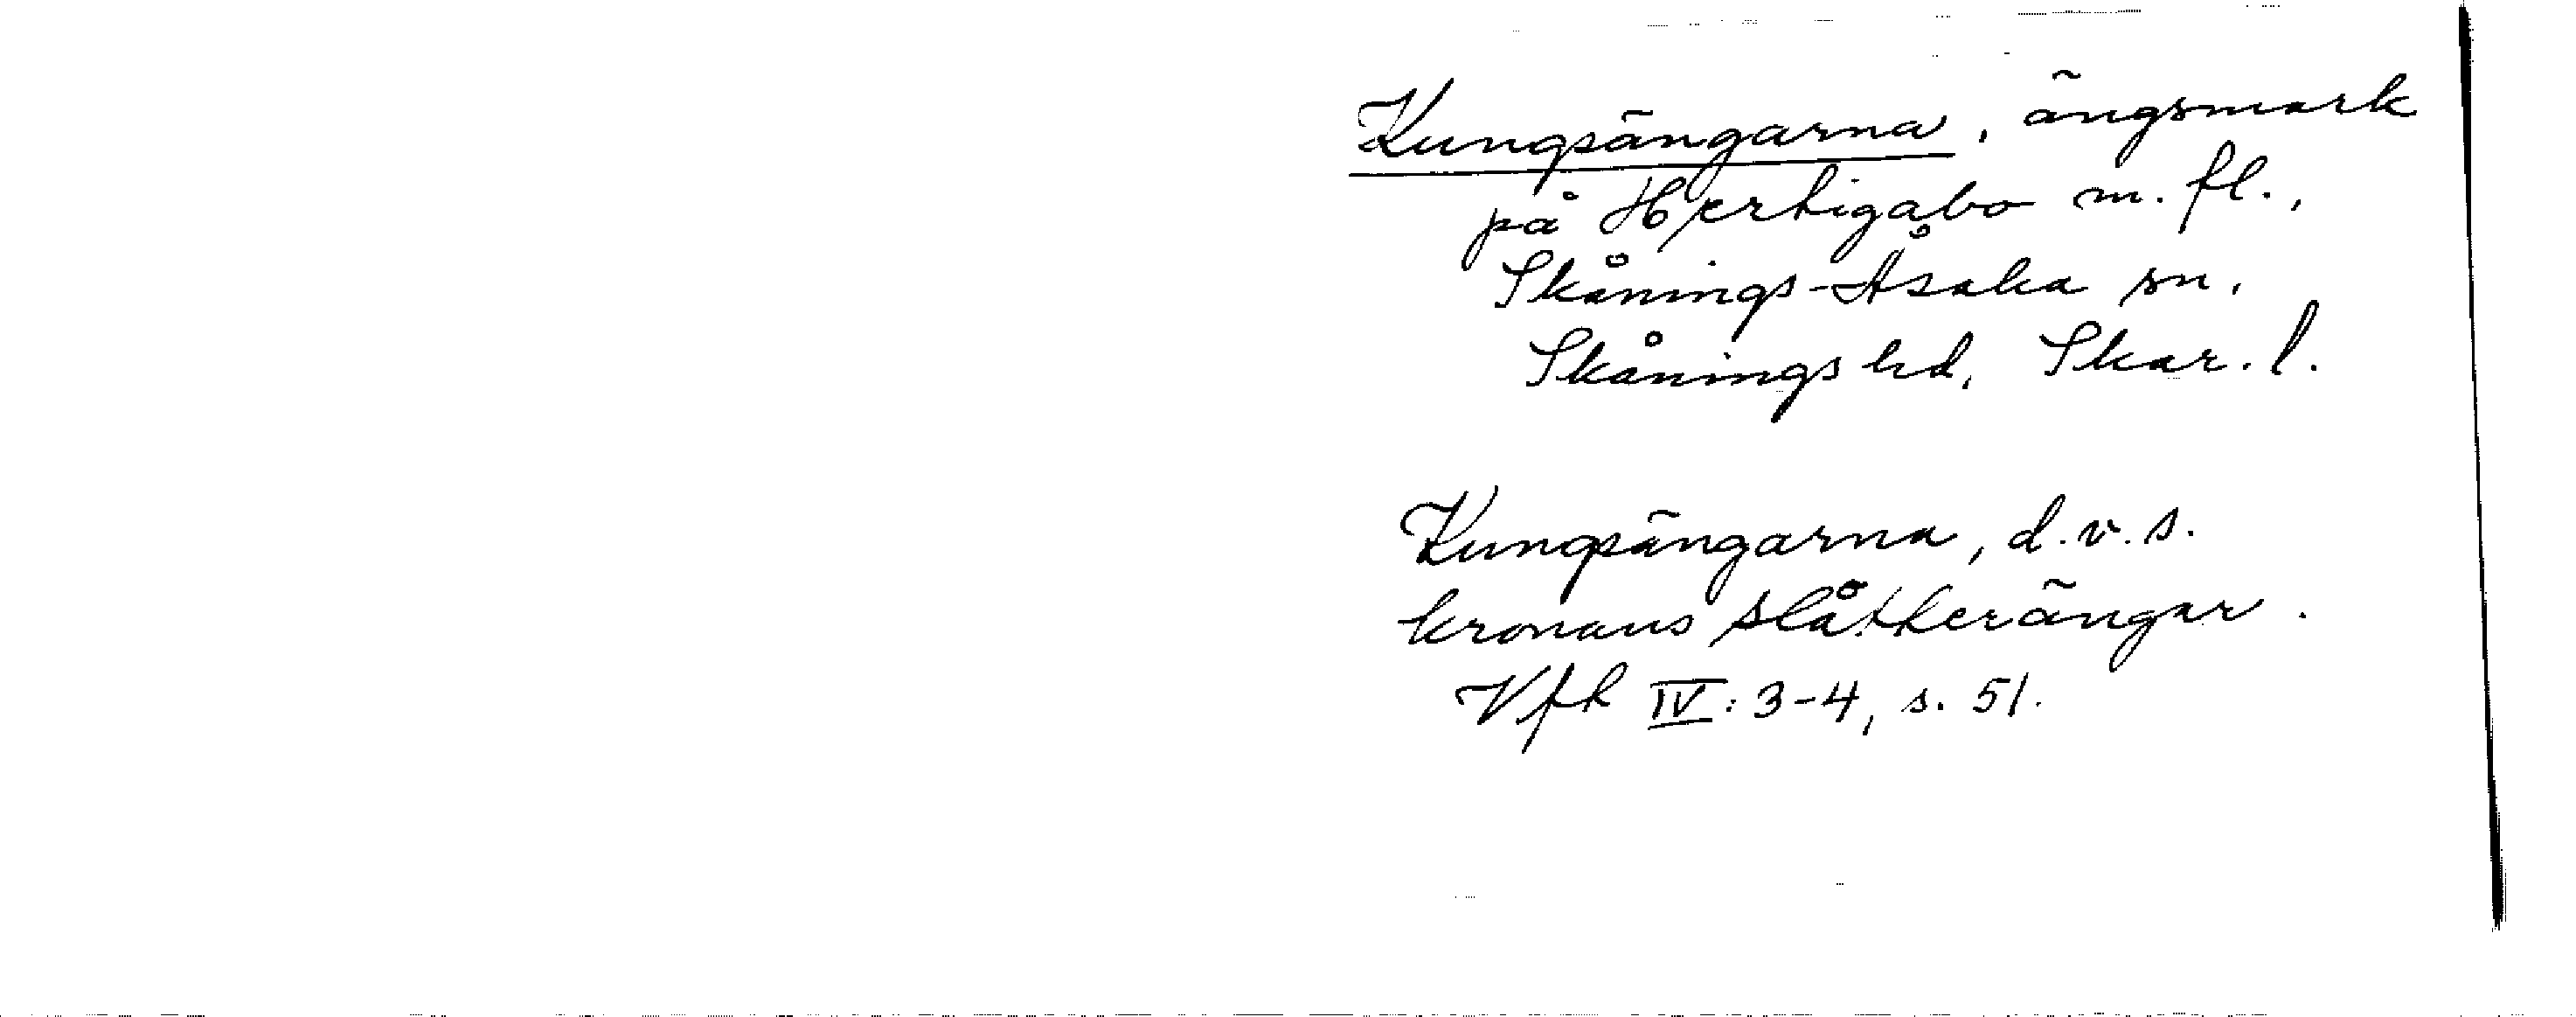 Kungsängarna, ängsmark
på Hertigabo m. fl.,
Skånings-Åsaka sn,
Skånings hd, Skar. l.
Kungsängarna, d.v.s.
kronans slåtterängar.
Vfh IV: 3-4, s. 51.